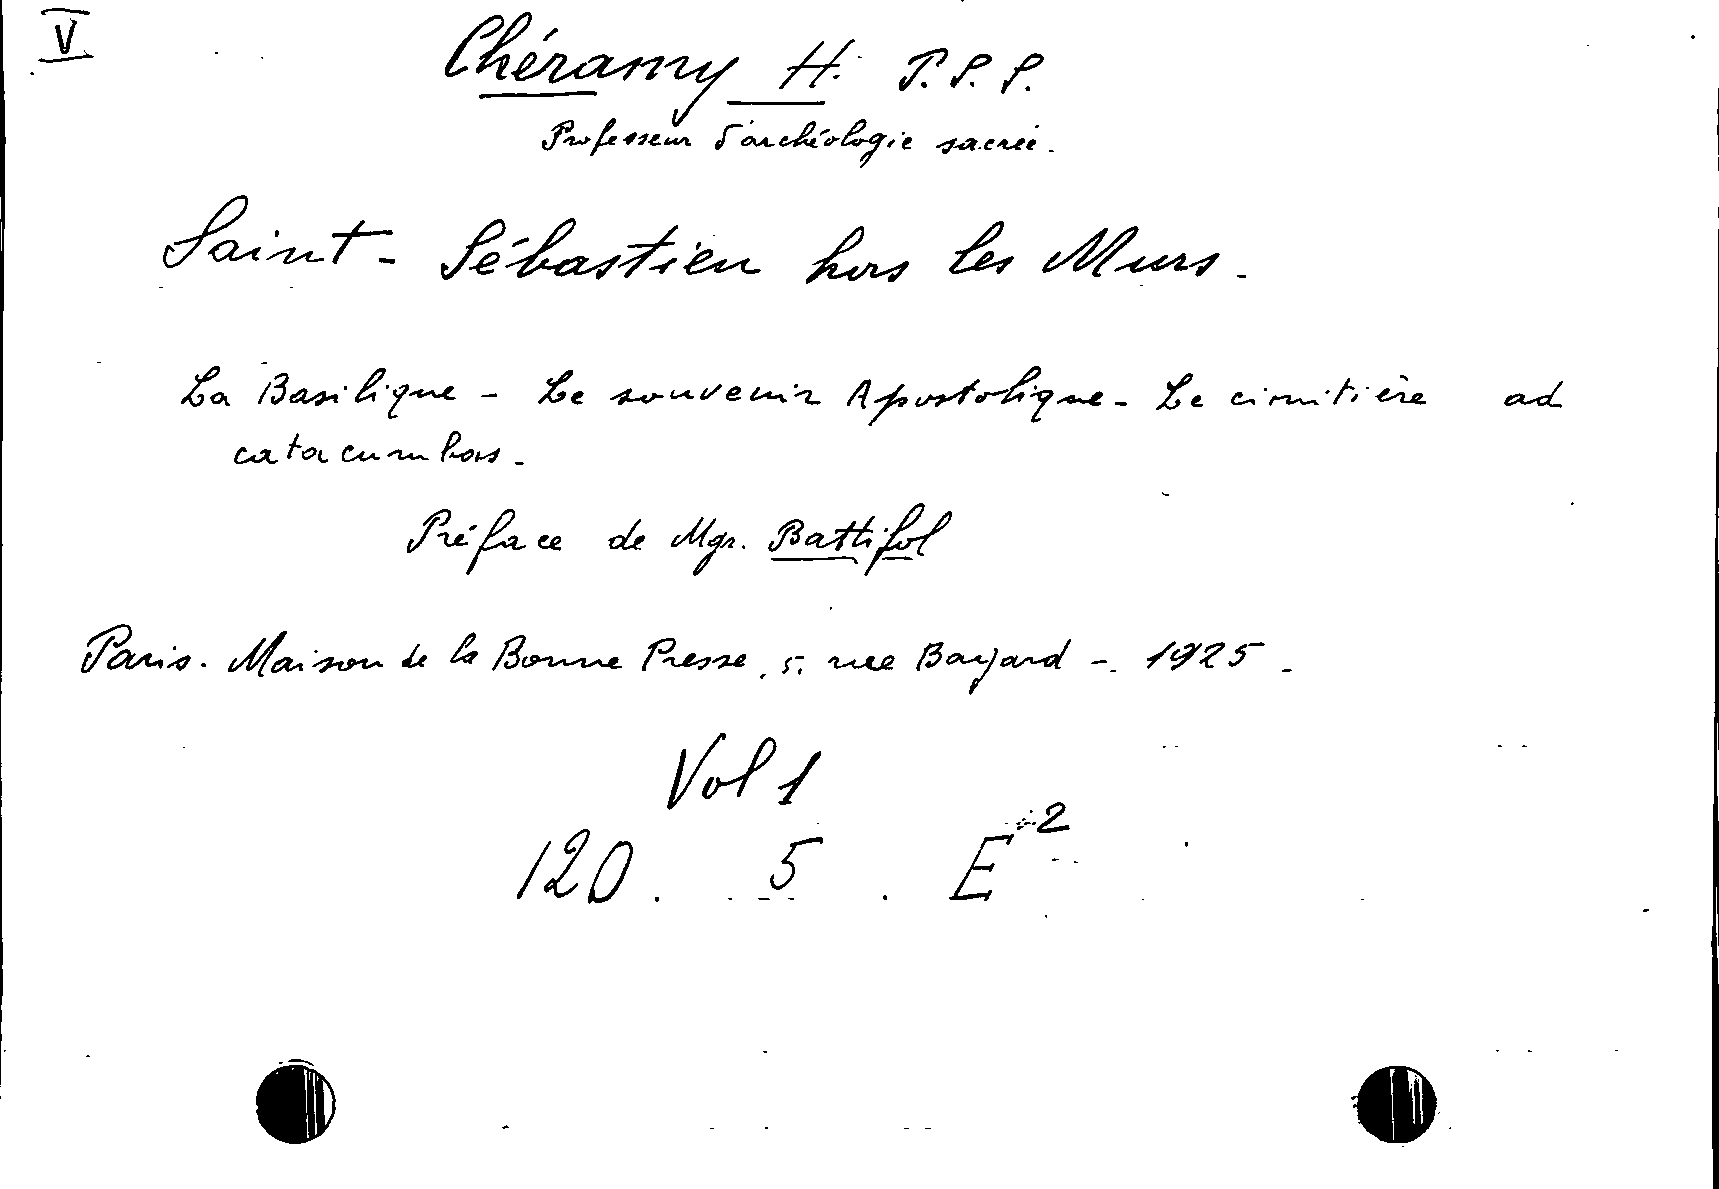 V
Chéramy H. P.S.S.
Professeur d'archéologie sacrée.
Saint-Sébastien hors les Murs.
La Basilique - Le souvenir Apostolique - Le cimitière ad
catacumbas.
Préface de Mgr. Battifol
Paris. Maison de la Bonne Presse, 5, rue Bayard - 1925.
Vol 1
120. 5. E²